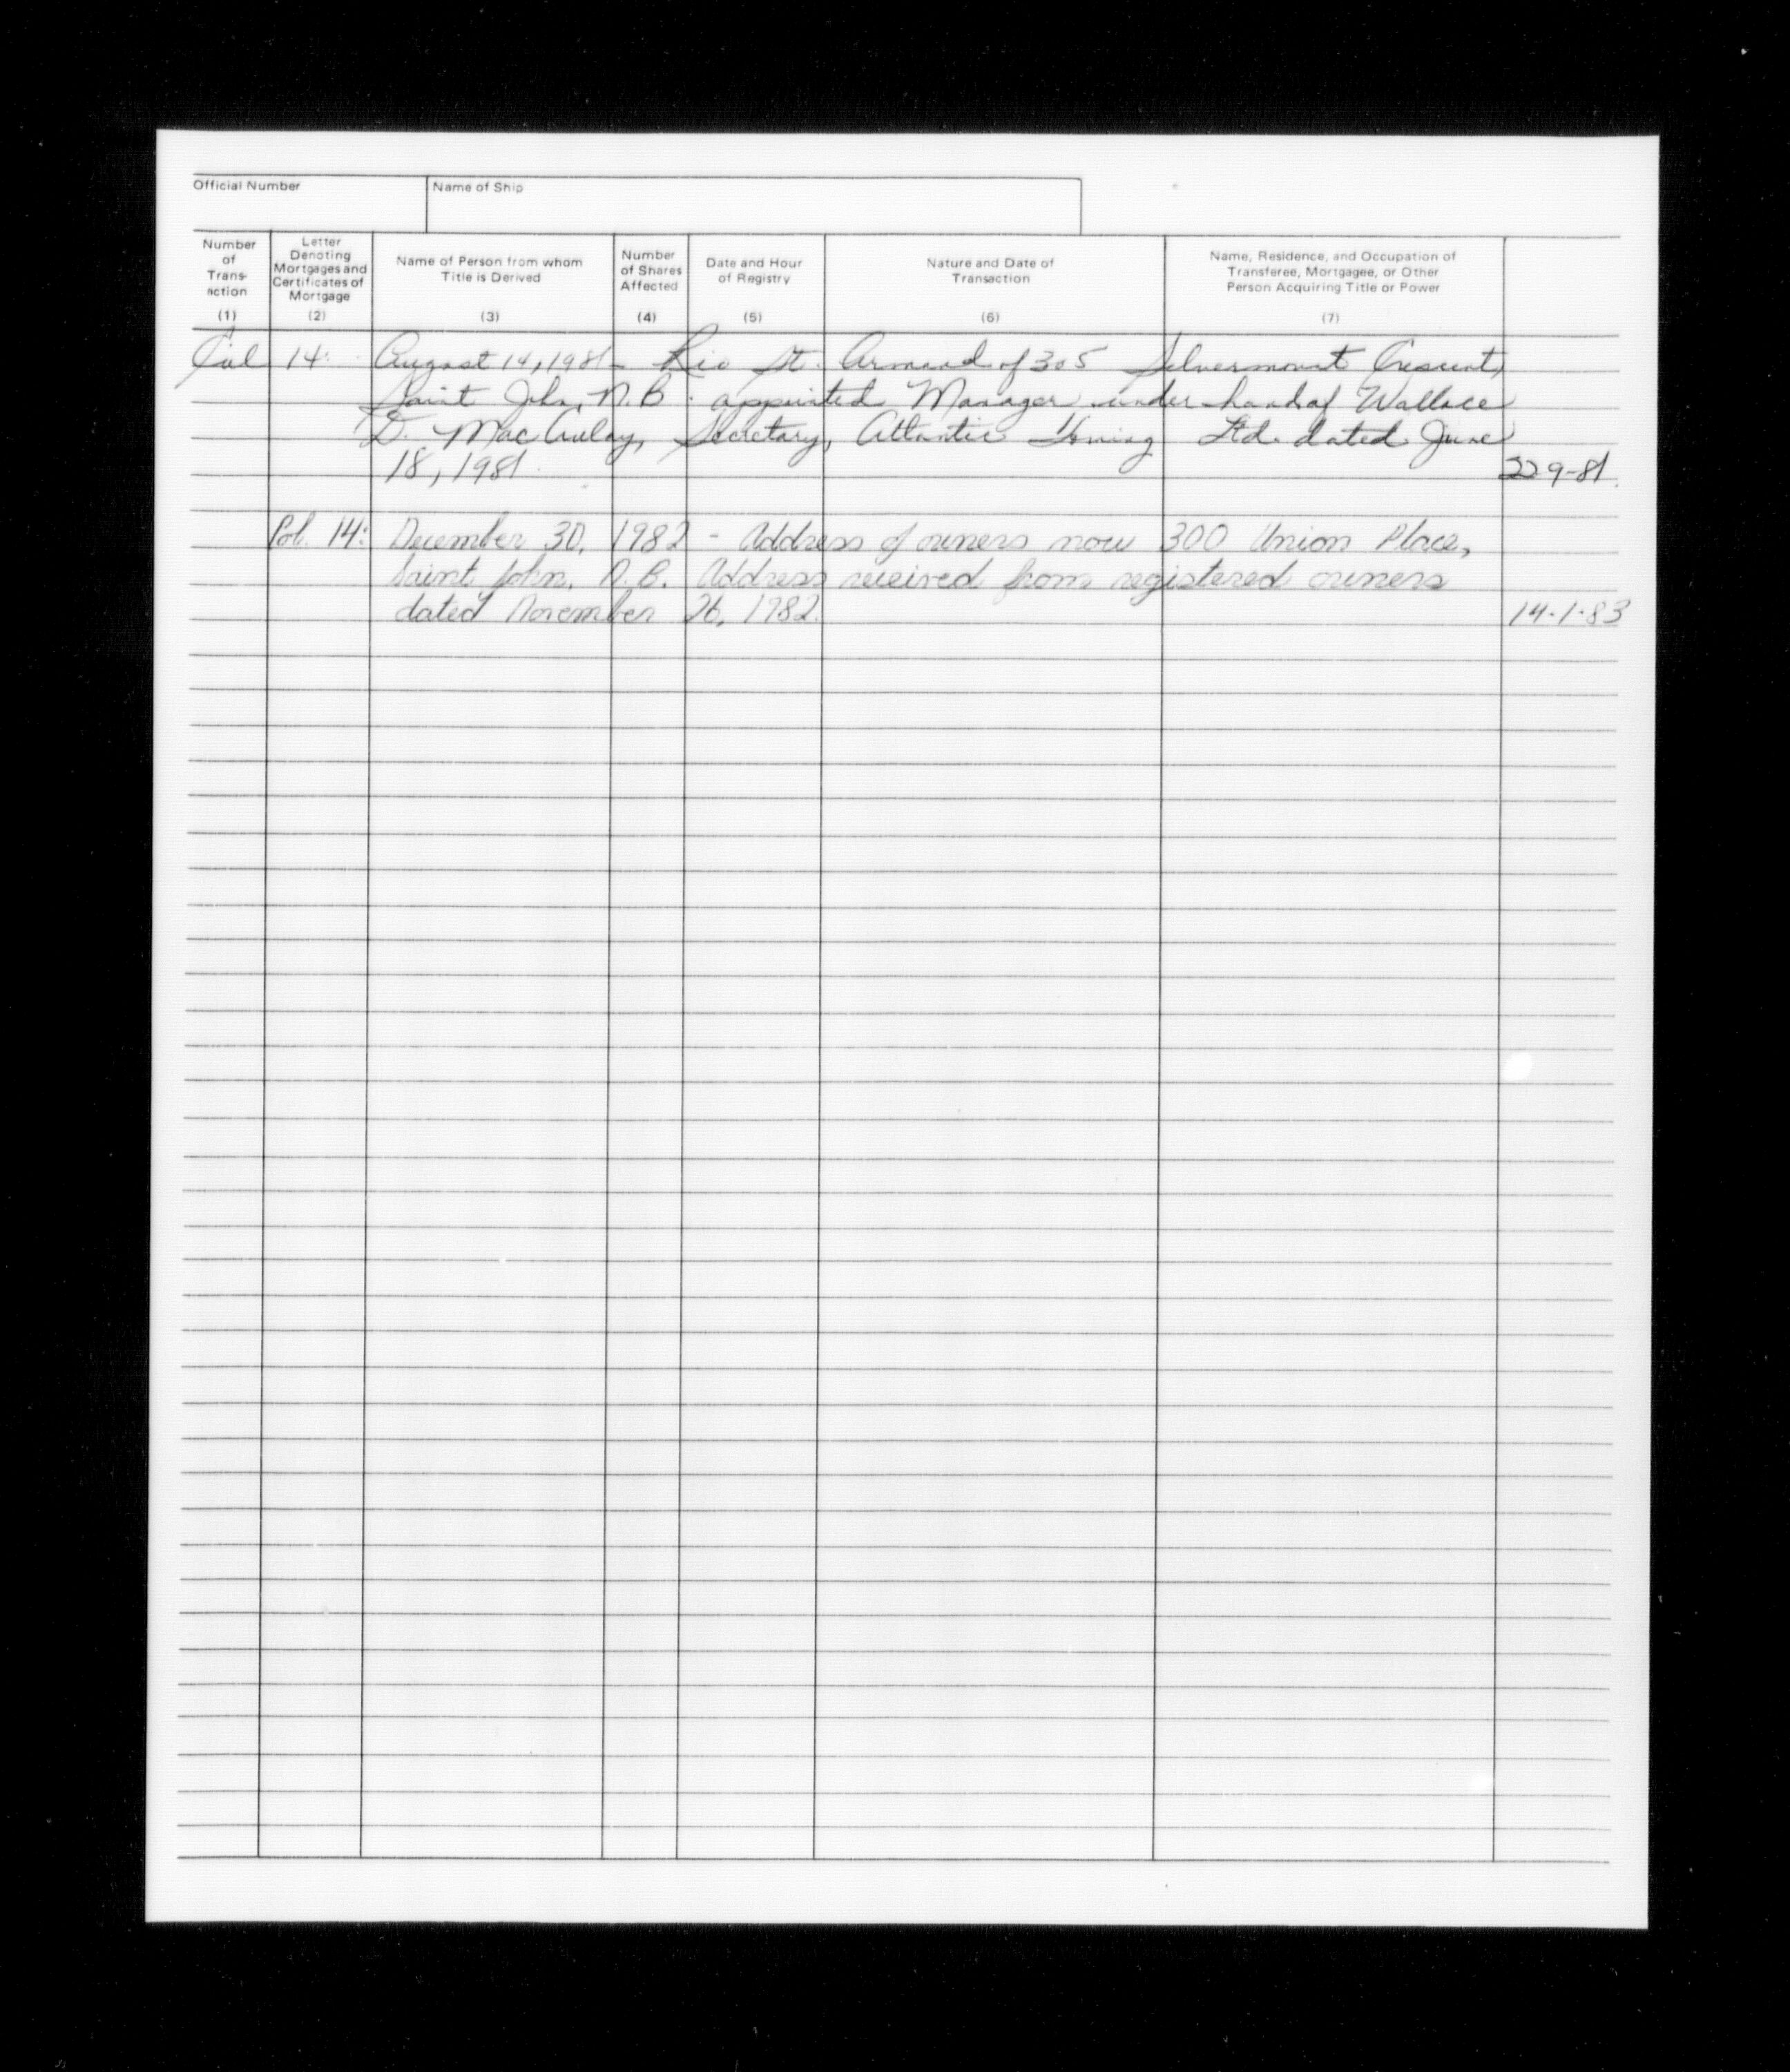 Official Number
Name of Ship
Number of Trans-action (1)
Letter Denoting Mortgages and Certificates of Mortgage (2)
Name of Person from whom Title is Derived (3)
Number of Shares Affected (4)
Date and Hour of Registry (5)
Nature and Date of Transaction (6)
Name, Residence, and Occupation of Transferee, Mortgagee, or Other Person Acquiring Title or Power (7)
Col 14: August 14, 1981 - St. Armand of 305 Silvermount Crescent,
Saint John, N.B. appointed Manager under hand of Wallace
D. MacAulay, Secretary, Atlantic Ltd. dated June
18, 1981. 22 9-81.
Col. 14: December 30, 1982 - Address of owners now 300 Union Place,
Saint John, N.B. Address received from registered owners
dated November 26, 1982. 14-1-83